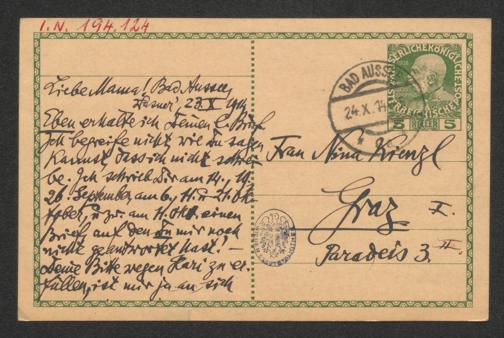 I.N. 194.124
Liebe Mama! Bad Aussee,
23.X.1914
Eben erhalte ich Deinen l. Brief
Ich begreife nicht wie Du sagen
kannst, dass ich nicht schrei-
be. Ich schrieb Dir am 14., 19.
26. September, am 6., 11. u. 21. Ok-
tober, u. zw. am 11. Okt. einen
Brief, auf den Du mir noch
nicht geantwortet hast! –
Deine Bitte wegen Hari zu er-
füllen, ist mir ja an sich
BAD AUSSEE
24.X.14
KAISERLICHE KÖNIGLICHE
5 HELLER 5
Frau Nina Kienzl
Graz
Paradeis 3. II.